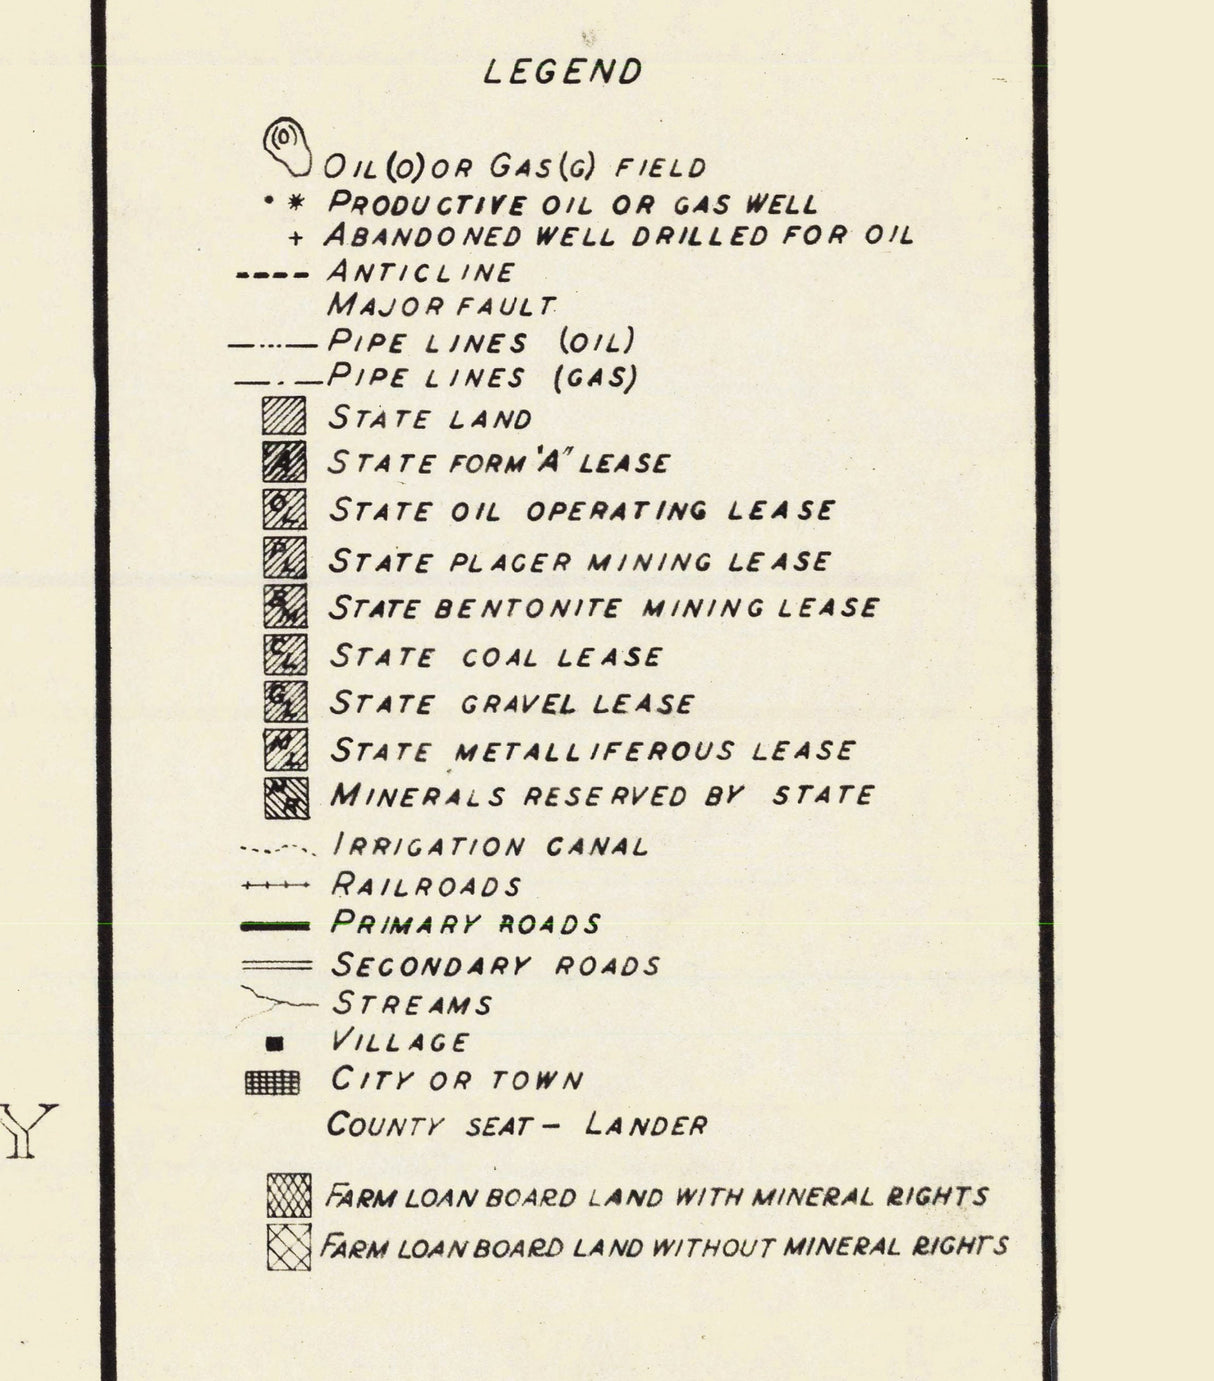 LEGEND
OIL(O) OR GAS(G) FIELD
PRODUCTIVE OIL OR GAS WELL
ABANDONED WELL DRILLED FOR OIL
ANTICLINE
MAJOR FAULT
PIPE LINES (OIL)
PIPE LINES (GAS)
STATE LAND
A STATE FORM 'A" LEASE
OL STATE OIL OPERATING LEASE
PL STATE PLACER MINING LEASE
BM STATE BENTONITE MINING LEASE
CL STATE COAL LEASE
GL STATE GRAVEL LEASE
ML STATE METALLIFEROUS LEASE
MR MINERALS RESERVED BY STATE
IRRIGATION CANAL
RAILROADS
PRIMARY ROADS
SECONDARY ROADS
STREAMS
VILLAGE
CITY OR TOWN
Y
COUNTY SEAT - LANDER
FARM LOAN BOARD LAND WITH MINERAL RIGHTS
FARM LOAN BOARD LAND WITHOUT MINERAL RIGHTS